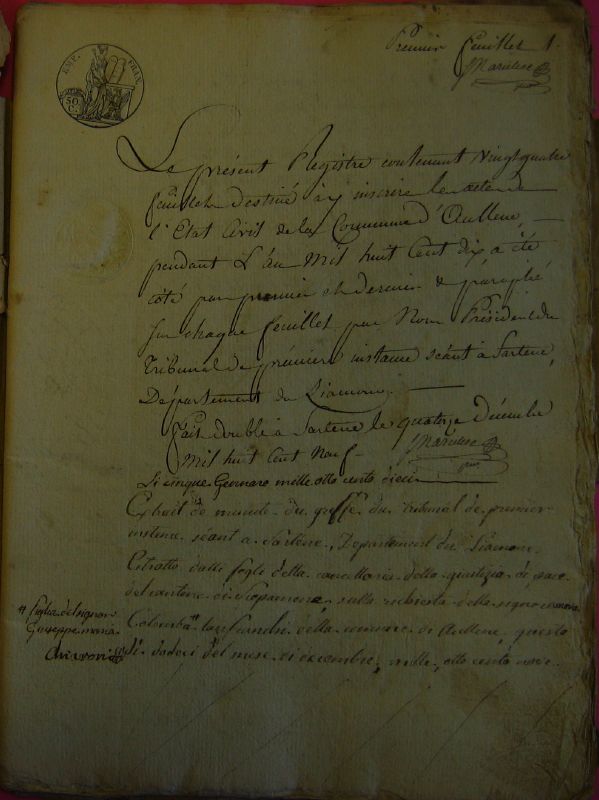 EMP. FRAN.
50 C.
Premier feuillet 1.
Le présent Registre contenant Vingt quatre
feuillets destiné à y inscrire les actes de
l'Etat Civil de la Commune d'Aullene,
pendant L'an Mil huit Cent dix, a été
côté par premier et dernier & paraphé
sur chaque feuillet par Nous Président du
Tribunal de première instance séant à Sartene,
Département du Liamone.
Fait double à Sartene le quatorze Décembre
Mil huit Cent Neuf
Li cinque Gennaro mille otto cento dieci
Extrait de minute du greffe du tribunal de premier
instence séant a Sartene, Département du Liamone.
Estratto dalli fogli della cancellaria della giustizia di pace
del cantone di sulla richiesta della signora
Colomba # della comune di Aullene, questo
di dodeci del mese di decembre, mille, otto cento nove.
# figlia del signor
Giuseppe maria